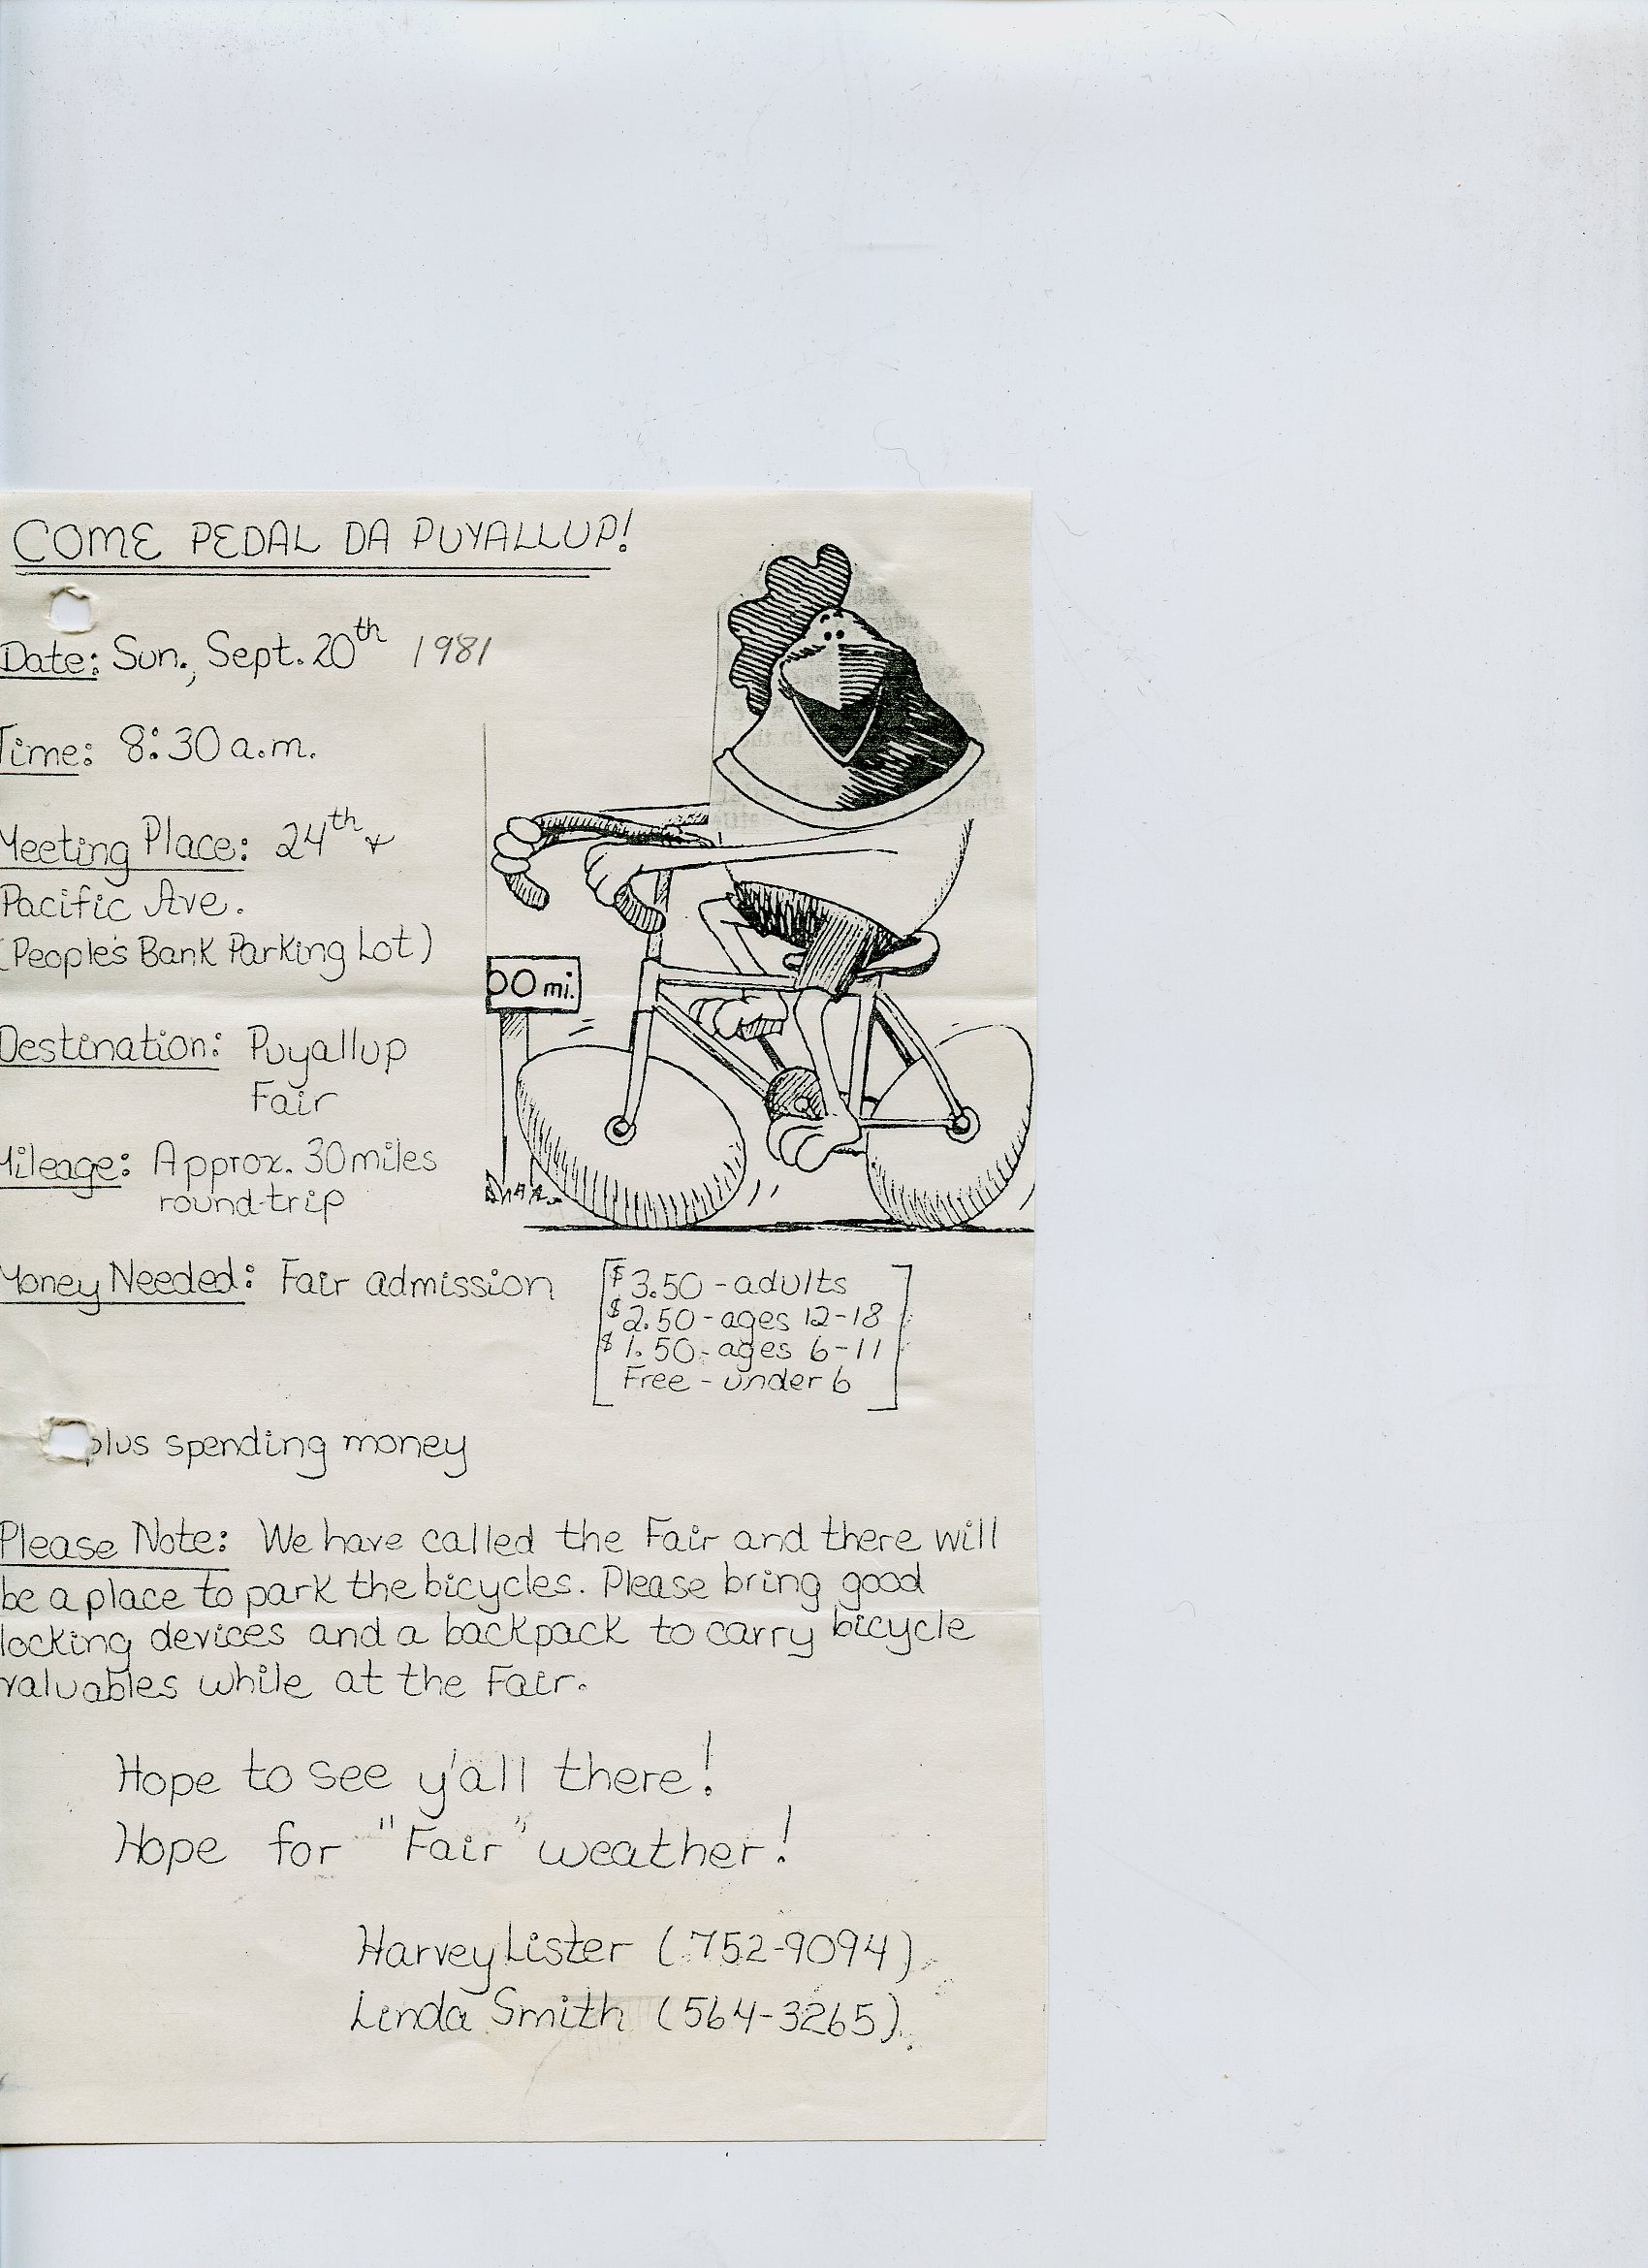 COME PEDAL DA PUYALLUP!
Date: Sun., Sept. 20th 1981
Time: 8:30 a.m.
Meeting Place: 24th &
Pacific Ave.
(People's Bank Parking Lot)
00 mi.
Destination: Puyallup
Fair
Mileage: Approx. 30 miles
round-trip
Money Needed: Fair admission
$3.50 - adults
$2.50 - ages 12-18
$1.50 - ages 6-11
Free - under 6
plus spending money
Please Note: We have called the Fair and there will
be a place to park the bicycles. Please bring good
locking devices and a backpack to carry bicycle
valuables while at the Fair.
Hope to see y'all there!
Hope for "Fair" weather!
Harvey Lister (752-9094)
Linda Smith (564-3265)